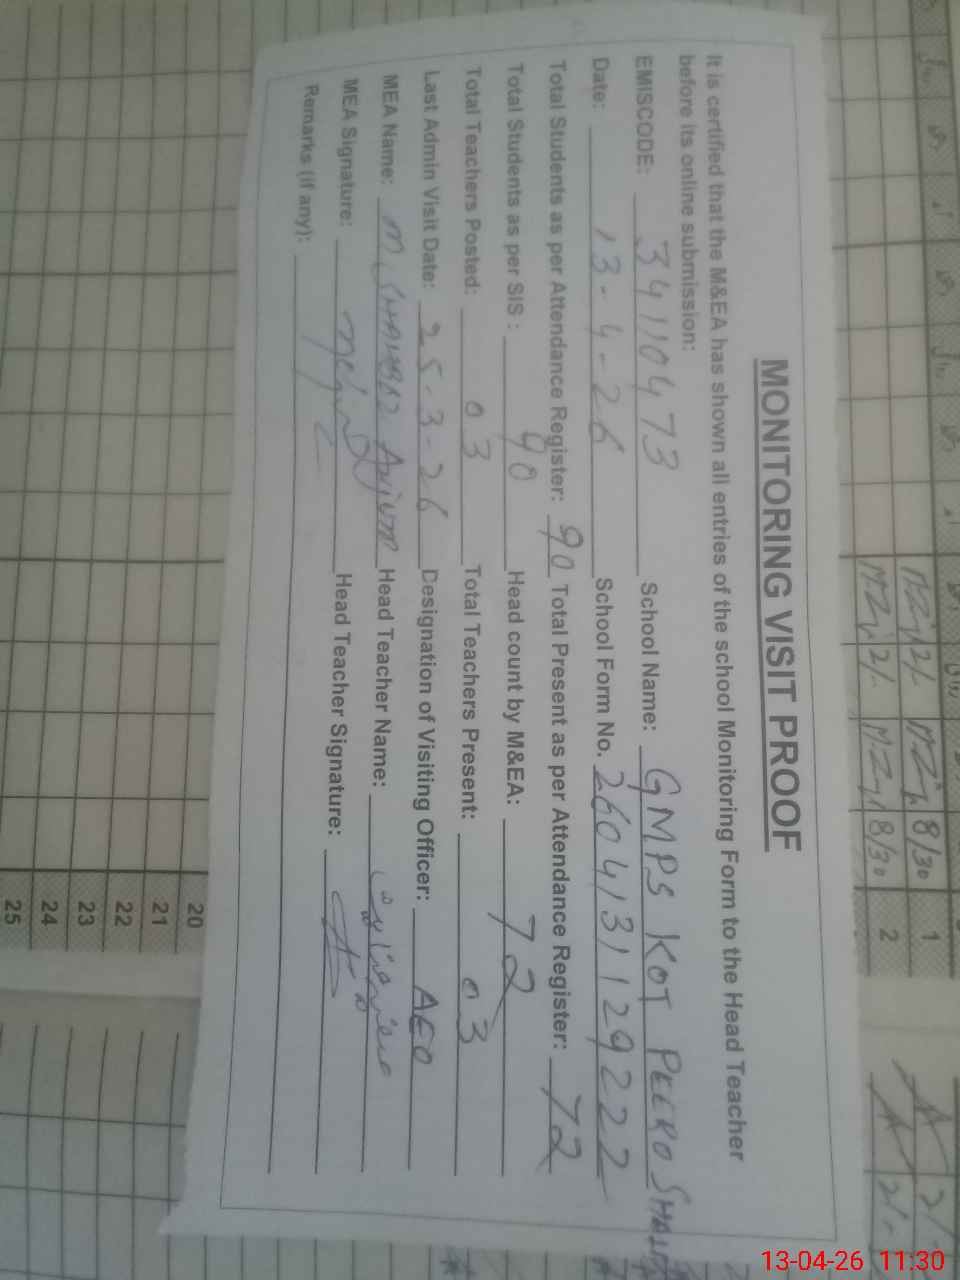 MONITORING VISIT PROOF
It is certified that the M&EA has shown all entries of the school Monitoring Form to the Head Teacher
before its online submission:
EMISCODE: 34110473 School Name: GMPS KOT PEERO SHAH
Date: 13-4-26 School Form No. 260413112922 2
Total Students as per Attendance Register: 90 Total Present as per Attendance Register: 72
Total Students as per SIS: 90 Head count by M&EA: 72
Total Teachers Posted: 03 Total Teachers Present: 03
Last Admin Visit Date: 25-3-26 Designation of Visiting Officer: AEO
MEA Name: Anjum Head Teacher Name:
MEA Signature: Head Teacher Signature:
Remarks (if any):
1
2
8/30
8/30
20
21
22
23
24
25
13-04-26 11:30